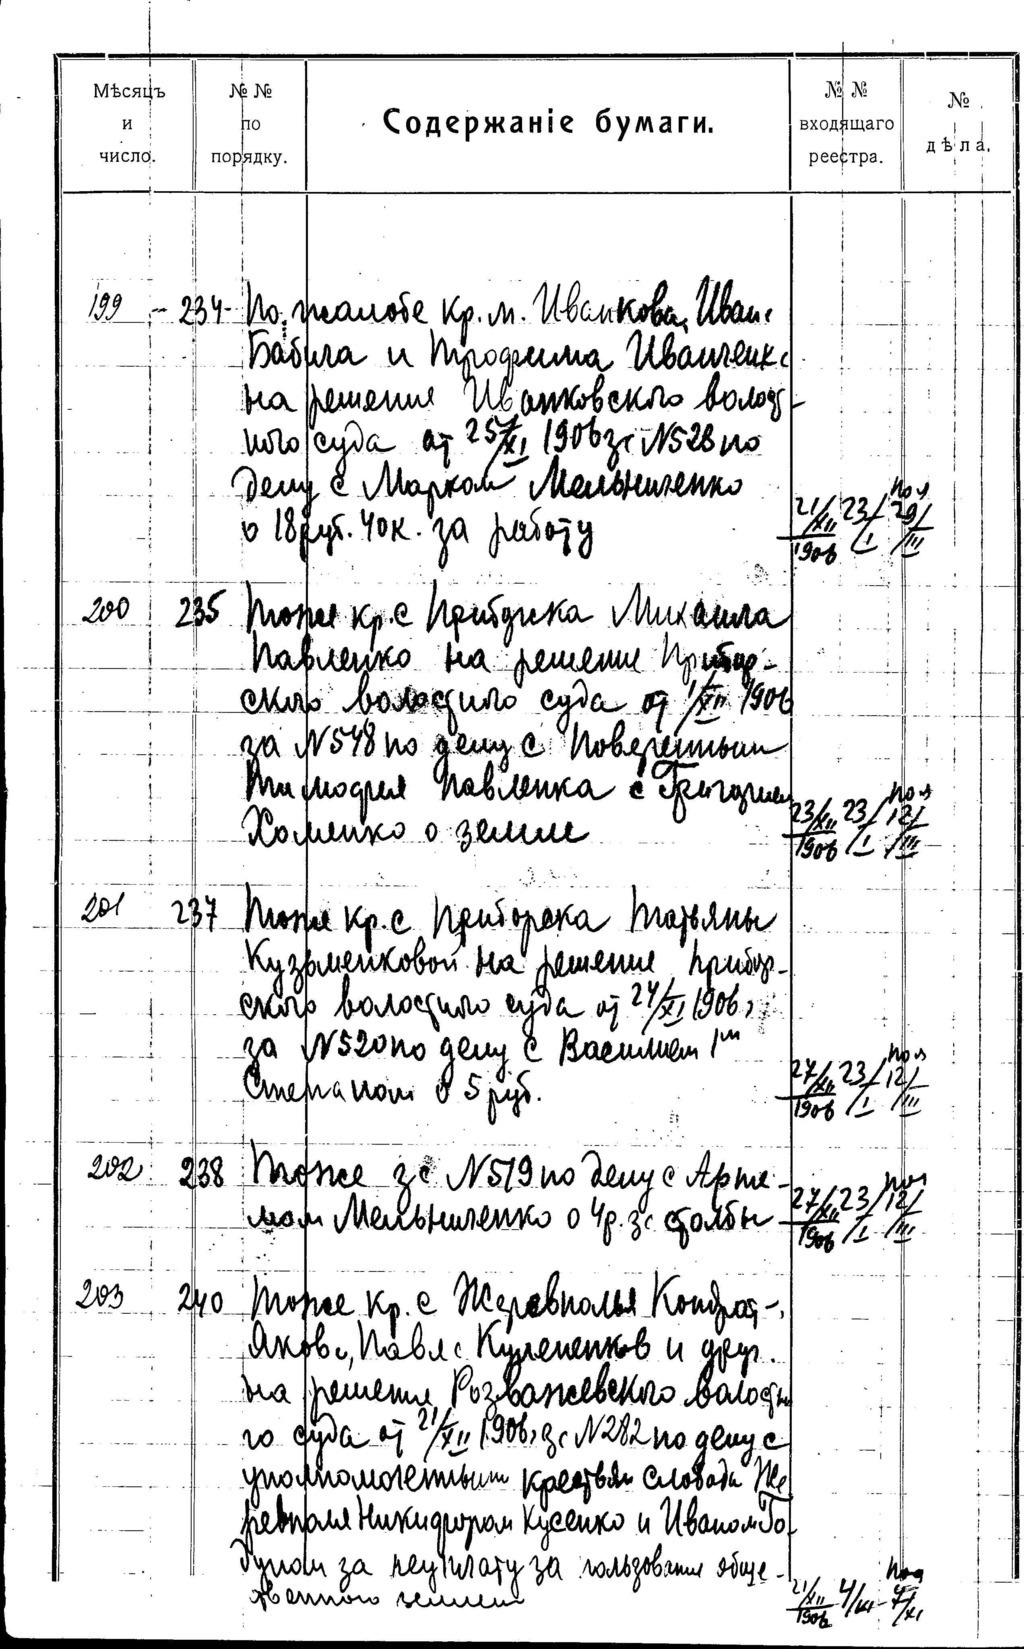 Мѣсяцъ и число.
№ № по порядку.
Содержаніе бумаги.
№ № входящаго реестра.
№ дѣла.
199 - 234 - По жалобе кр. м. Иванкова, Ивана
Бабила и Трофима Иванченко
на решение Иванковского волост-
ного суда от 25/XI 1906 за N528 по
делу с Марком Мельниченко
о 18 руб. 40к. за работу
21/XII 1906 23/I 29/III
200 235 тоже кр. с Михаила
Павленко на решение Прибор-
ского волостного суда от 1/XII 1906
за N548 по делу с Поверенным
Тимофея Павленка с Григорием
Хоменко о земле
23/XII 1906 23/I 12/III
201 237 тоже кр. с Приборска Татьяны
Кузьменковой на решение Прибор-
ского волостного суда от 24/XI 1906 г
за N520 по делу с Василием
Степаном о 5 руб.
27/XII 1906 23/I 12/III
202 238 тоже за N519 по делу с Арте-
мом Мельниченко о 4р. за столбы
27/XII 1906 23/I 12/III
203 240 тоже кр. с Жеревполья Кондрат-
Якова, Павла и друг.
на решение Розважевского волостно
го суда от 21/XII 1906 г за N282 по делу с
уполномоченным крестьян слободы Же
ревполя Никифором Кусенко и Иваном Го-
дуном за неуплату за пользование обще-
ственного землею
21/XII 1906